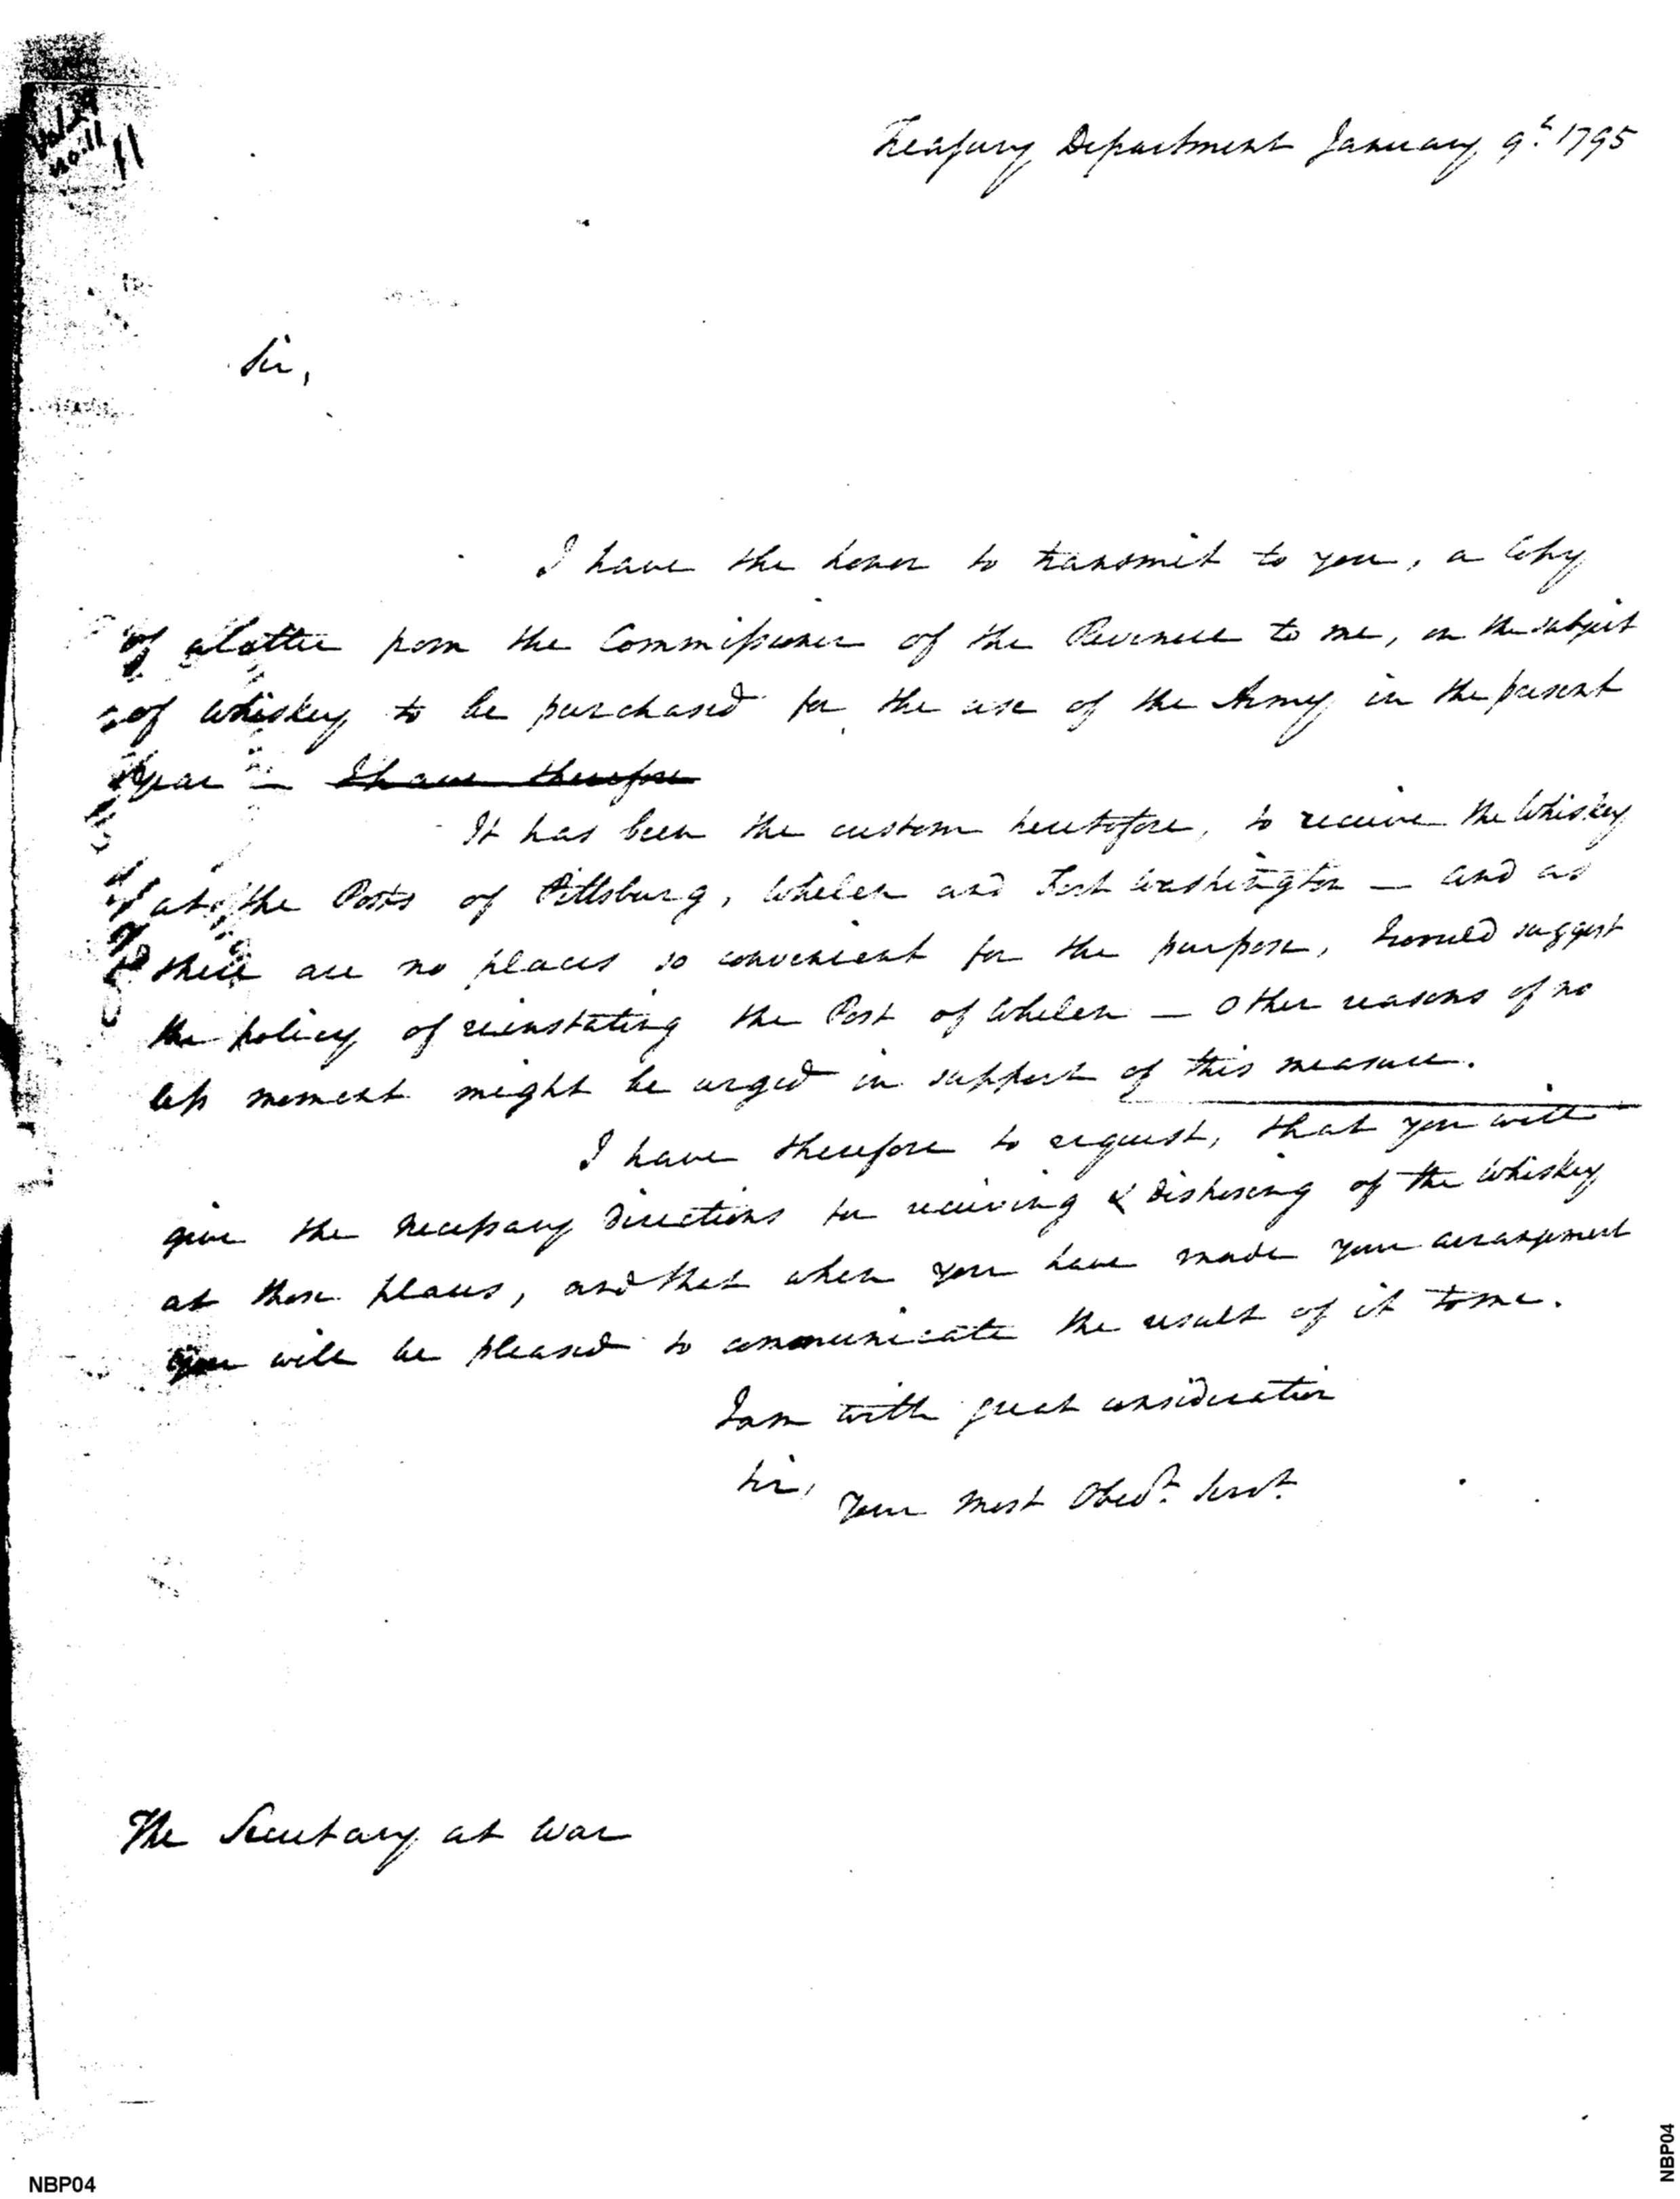 Vol. 29
No. 11
11
Treasury Department January 9th. 1795
Sir,
I have the honor to transmit to you, a Copy
of a letter from the Commissioner of the Revenue to me, on the subject
of Whiskey to be purchased for the use of the Army in the present
Year — I have therefore
It has been the custom heretofore, to receive the Whiskey
at the Posts of Pittsburg, Whelen and Fort Washington — and as
there are no places so convenient for the purpose, I would suggest
the policy of reinstating the Post of Whelen — Other reasons of no
less moment might be urged in support of this measure.
I have therefore to request, that you will
give the necessary directions for receiving & disposing of the Whiskey
at those places, and that when you have made your arrangement
you will be pleased to communicate the result of it to me.
I am with great consideration
Sir,
Your Most Obedt. Servt.
The Secretary at War
NBP04
NBP04